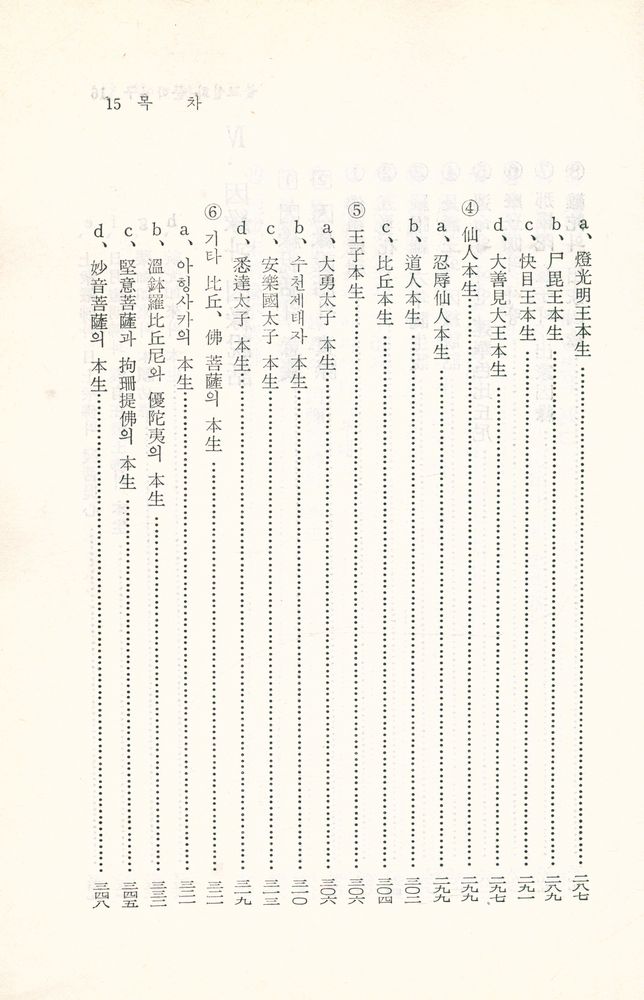 15 목 차
a、燈光明王本生……二八七
b、尸毘王本生……二八九
c、快目王本生……二九一
d、大善見大王本生……二九七
④ 仙人本生……二九九
a、忍辱仙人本生……二九九
b、道人本生……三〇二
c、比丘本生……三〇四
⑤ 王子本生……三〇六
a、大勇太子 本生……三〇六
b、수천제태자 本生……三一〇
c、安樂國太子 本生……三一三
d、悉達太子 本生……三一九
⑥ 기타 比丘、佛 菩薩의 本生……三二一
a、아힝사카의 本生……三二一
b、溫鉢羅比丘尼와 優陀夷의 本生……三三二
c、堅意菩薩과 拘珊提佛의 本生……三四五
d、妙音菩薩의 本生……三四八